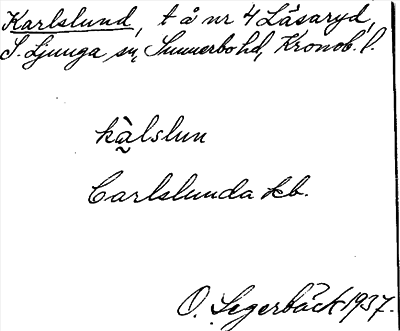 Karlslund, t å nr 4 Läsaryd,
S. Ljunga sn, Sunnerbo hd, Kronob. l.
kàlslun
Carlslunda kb.
O. Segerbäck 1937.